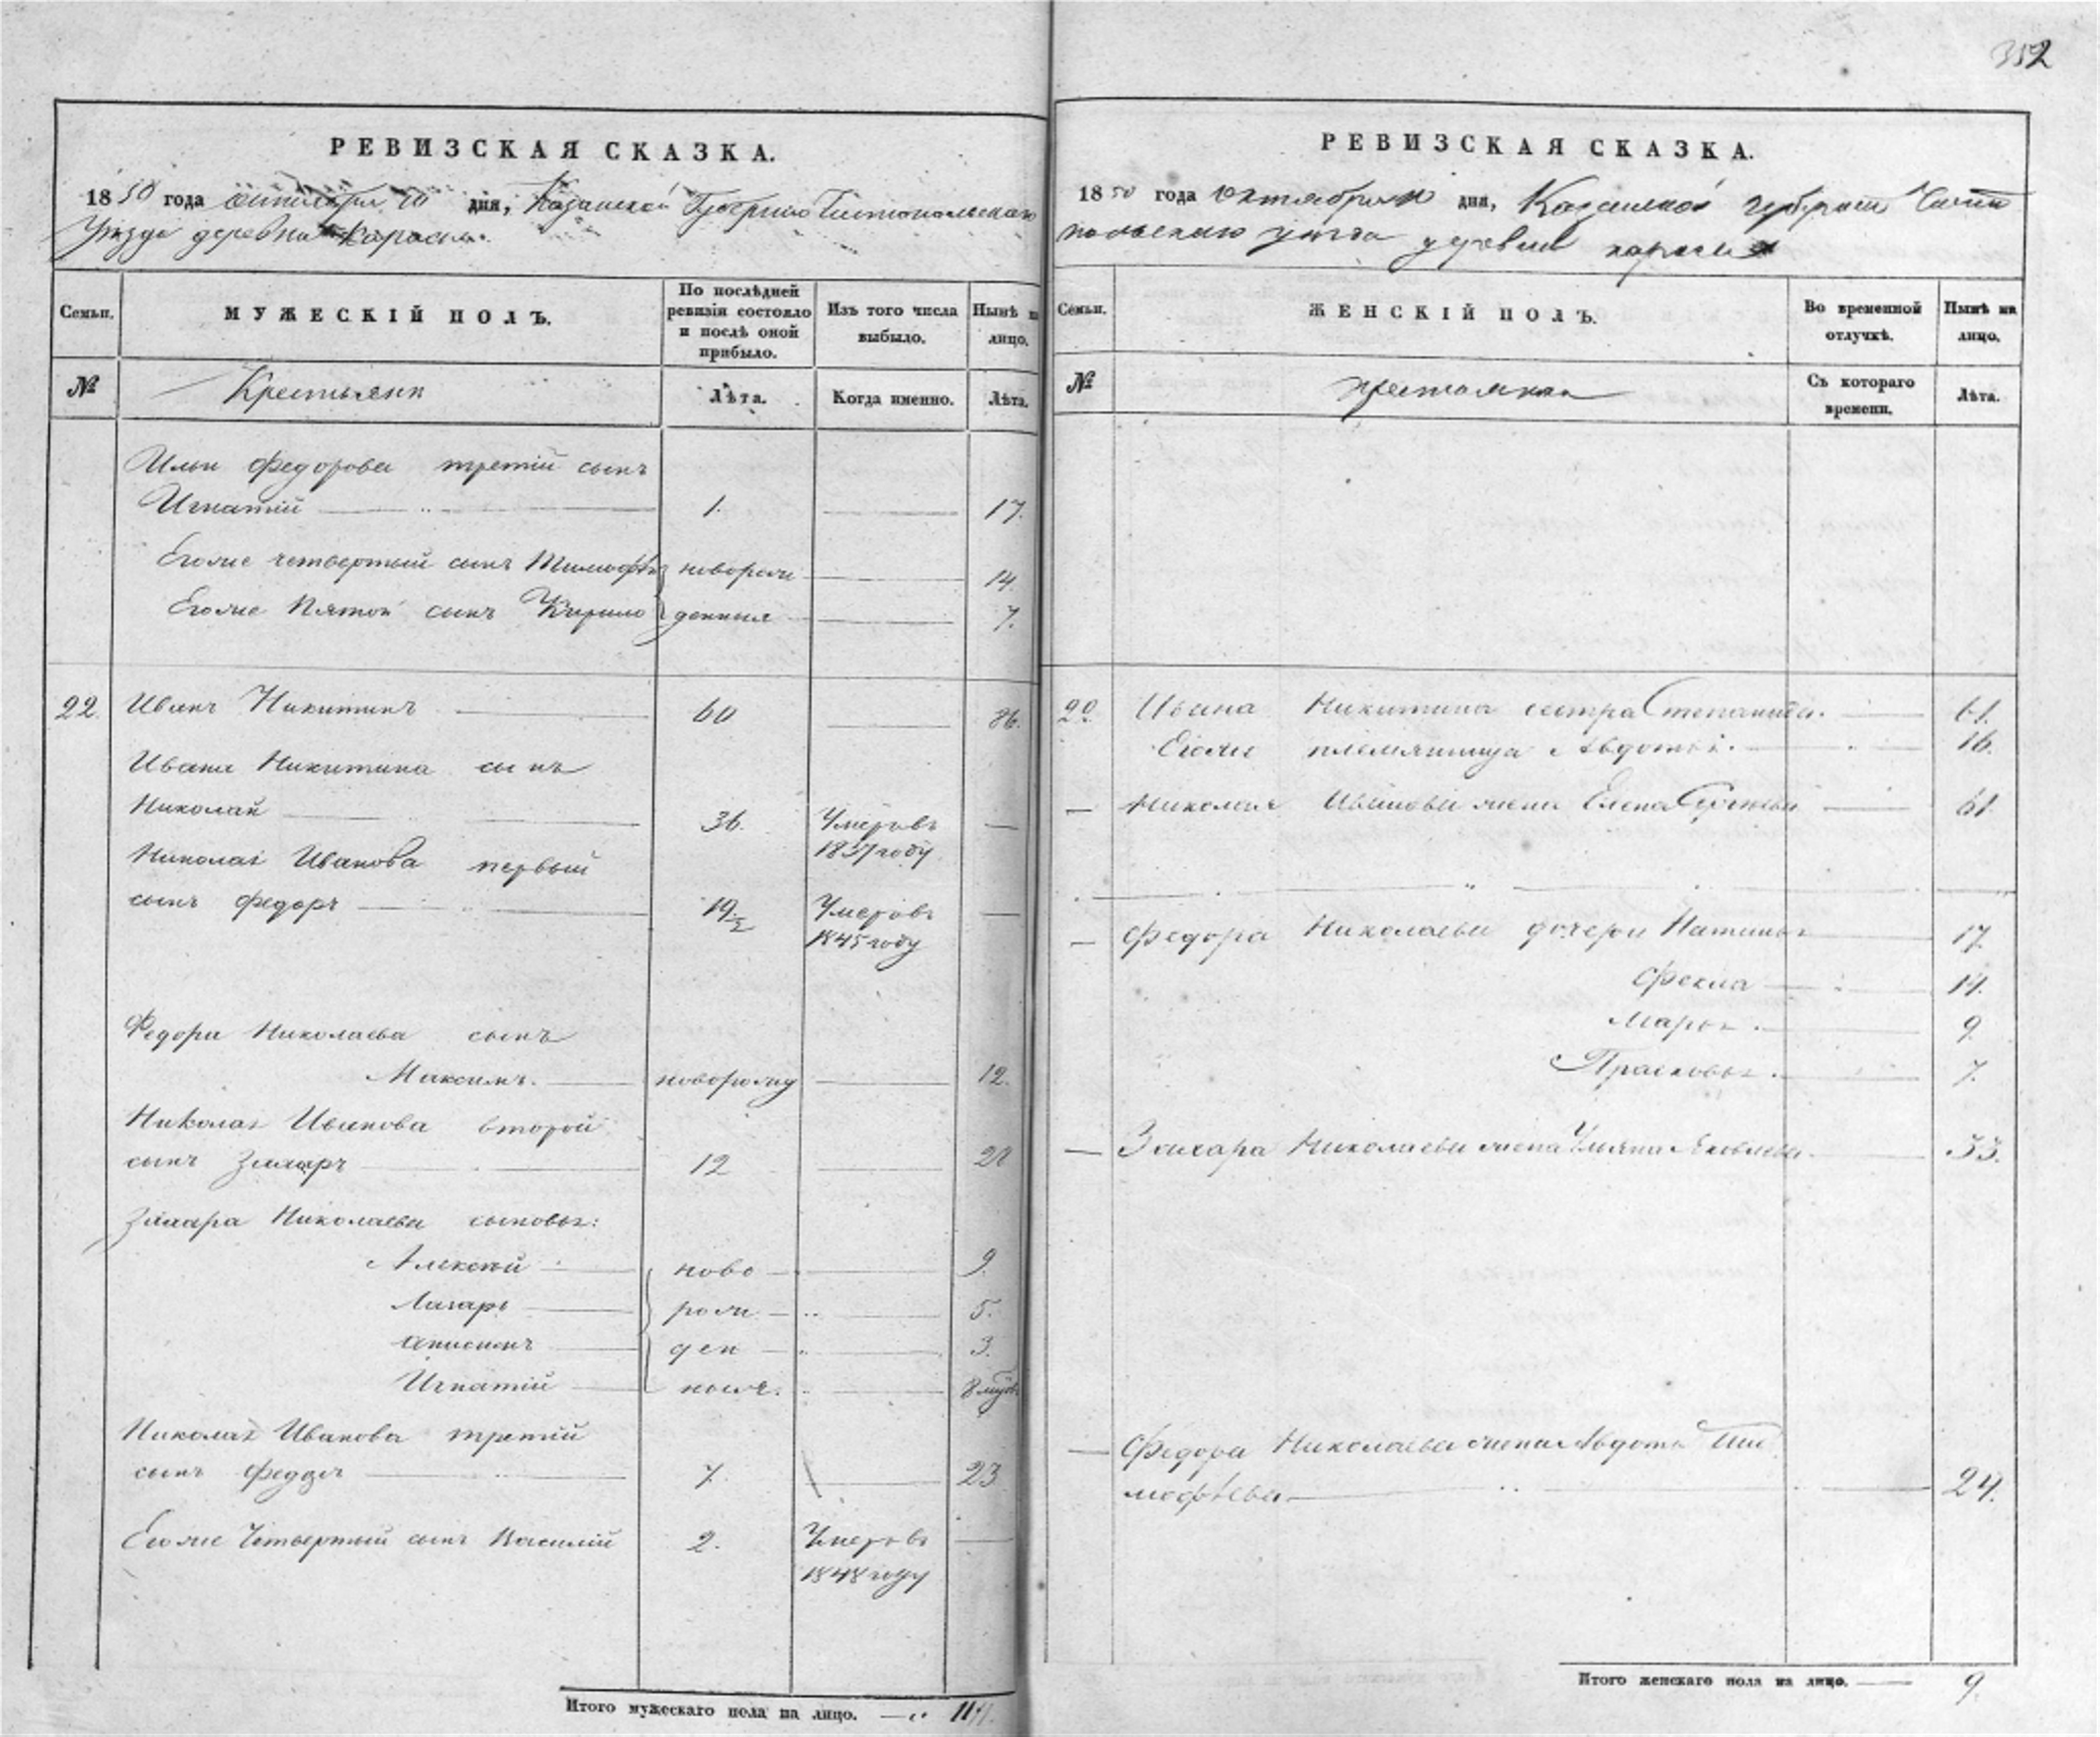 352
РЕВИЗСКАЯ СКАЗКА.
1850 года октября 10 дня, Казанской Губернии Чистопольскаго
Уезда деревни Карасы.
Семьи. МУЖЕСКІЙ ПОЛЪ. По послѣдней ревизіи состояло и послѣ оной прибыло. Изъ того числа выбыло. Нынѣ на лицо.
№ Крестьяни Лѣта. Когда именно. Лѣта.
Ильи Федорова третій сынъ
Игнатій 1. 17.
Егоже четвертый сынъ Тимофѣй новорож 14
Егоже Пятой сынъ Кирило денныя 7.
22 Иванъ Никитинъ 60 86.
Ивана Никитина сынъ
Николай 36. Умеръ въ
1837 году
Николая Иванова первый
сынъ Федоръ 19½ Умеръ въ
1845 году
Федора Николаева сынъ
Максимъ. новорожд 12.
Николая Иванова второй
сынъ Захаръ 12 28
Захара Николаева сыновья:
Алексей ново 9.
Лазарь рож 5.
Анисимъ ден 3.
Игнатій ныя. 8 мѣс
Николая Иванова третій
сынъ Федоръ 7. 23
Егоже Четвертый сынъ Василій 2. Умеръ въ
1848 году
Итого мужескаго пола на лицо. 11
РЕВИЗСКАЯ СКАЗКА.
1850 года октября 10 дня, Казанской губернии Чисто
польскаго уезда деревни карасы
Семьи. ЖЕНСКІЙ ПОЛЪ. Во временной отлучкѣ. Нынѣ на лицо.
№ крестьянки Съ котораго времени. Лѣта.
22. Ивана Никитина сестра Степанида. 61.
Егоже племянница Авдотья. 16.
Николая Иванова жена Елена 61.
Федора Николаева дочери 17.
Фекла 14.
Марья. 9.
Прасковья. 7.
Захара Николаева жена Ульяна Яковлева 33.
Федора Николаева жена Авдотья Тим
мофѣева 24.
Итого женскаго пола на лицо. 9.